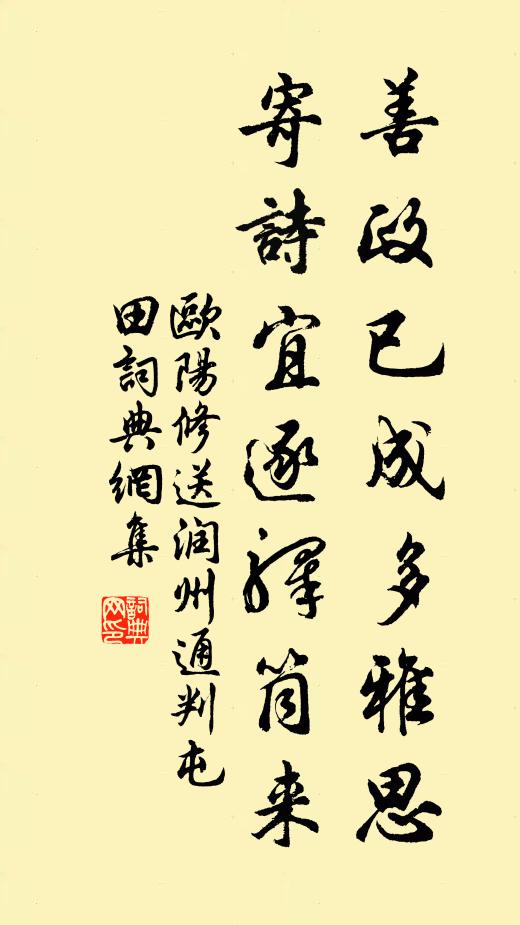 善政已成多雅思
寄詩宜逐驛筒来
歐陽修送润州通判屯
田詞典網集
詞典
网印